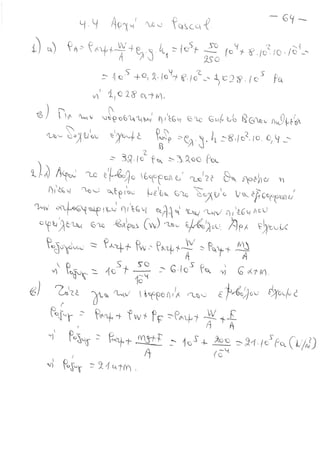 - 64 -
4.4 Αρχή του Pascal
1) α) P_A = P_ατμ + W/A + ρ_λ g h_1 = 10^5 + 50/250 10^4 + 8·10^2·10·10^-1 =
= 10^5 + 0,2·10^4 + 8·10^2 = 1,028·10^5 Pa
ή 1,028 atm.
β) Για την υδροστατική πίεση στο σημείο Β στον πυθμένα
του δοχείου έχουμε P_υδρ Β = ρ_λ g h = 8·10^2·10·0,4 =
= 32·10^2 Pa = 3200 Pa
2) α) Αφού το έμβολο ισορροπεί τότε θα πρέπει η
πίεση του αερίου μέσα στο δοχείο να εξισορροπεί
την ατμοσφαιρική πίεση αλλά και την πίεση που
οφείλεται στο βάρος (W) του εμβόλου. Άρα έχουμε
P_οξυγόνου = P_ατμ + P_W = P_ατμ + W/A = P_ατμ + mg/A
ή P_οξυγ = 10^5 + 50/10^-4 = 6·10^5 Pa ή 6 atm.
β) Τότε για την ισορροπία του εμβόλου έχουμε
P_οξυγ = P_ατμ + P_W + P_F = P_ατμ + W/A + F/A
ή P_οξυγ = P_ατμ + mg+F/A = 10^5 + 200/10^-4 = 21·10^5 Pa (N/m^2)
ή P_οξυγ = 21 atm.